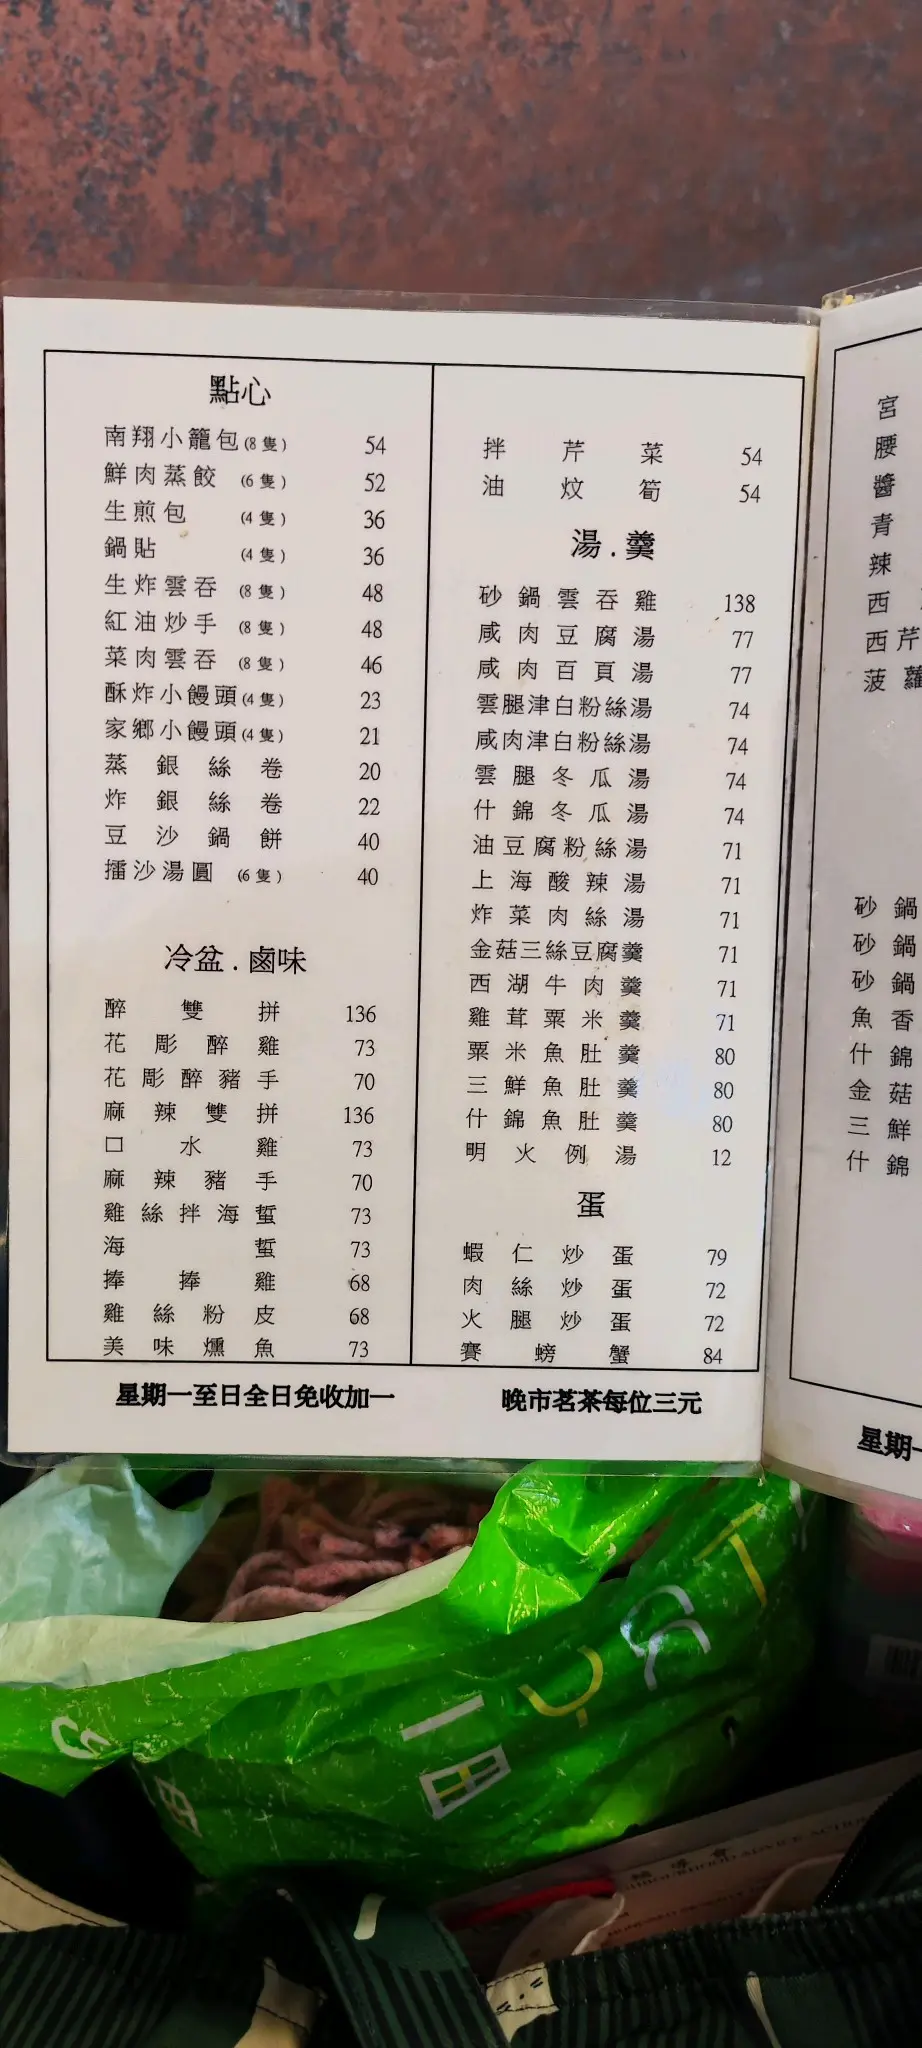 點心
南翔小籠包(8隻) 54
鮮肉蒸餃 (6隻) 52
生煎包 (4隻) 36
鍋貼 (4隻) 36
生炸雲吞 (8隻) 48
紅油炒手 (8隻) 48
菜肉雲吞 (8隻) 46
酥炸小饅頭(4隻) 23
家鄉小饅頭(4隻) 21
蒸銀絲卷 20
炸銀絲卷 22
豆沙鍋餅 40
擂沙湯圓 (6隻) 40
冷盆.鹵味
醉雙拼 136
花彫醉雞 73
花彫醉豬手 70
麻辣雙拼 136
口水雞 73
麻辣豬手 70
雞絲拌海蜇 73
海蜇 73
捧捧雞 68
雞絲粉皮 68
美味燻魚 73
星期一至日全日免收加一
拌芹菜 54
油炆筍 54
湯.羹
砂鍋雲吞雞 138
咸肉豆腐湯 77
咸肉百頁湯 77
雲腿津白粉絲湯 74
咸肉津白粉絲湯 74
雲腿冬瓜湯 74
什錦冬瓜湯 74
油豆腐粉絲湯 71
上海酸辣湯 71
炸菜肉絲湯 71
金菇三絲豆腐羹 71
西湖牛肉羹 71
雞茸粟米羹 71
粟米魚肚羹 80
三鮮魚肚羹 80
什錦魚肚羹 80
明火例湯 12
蛋
蝦仁炒蛋 79
肉絲炒蛋 72
火腿炒蛋 72
賽螃蟹 84
晚市茗茶每位三元
宮
腰
醬
青
辣
西
西芹
菠蘿
砂鍋
砂鍋
砂鍋
魚香
什錦
金菇
三鮮
什錦
星期一